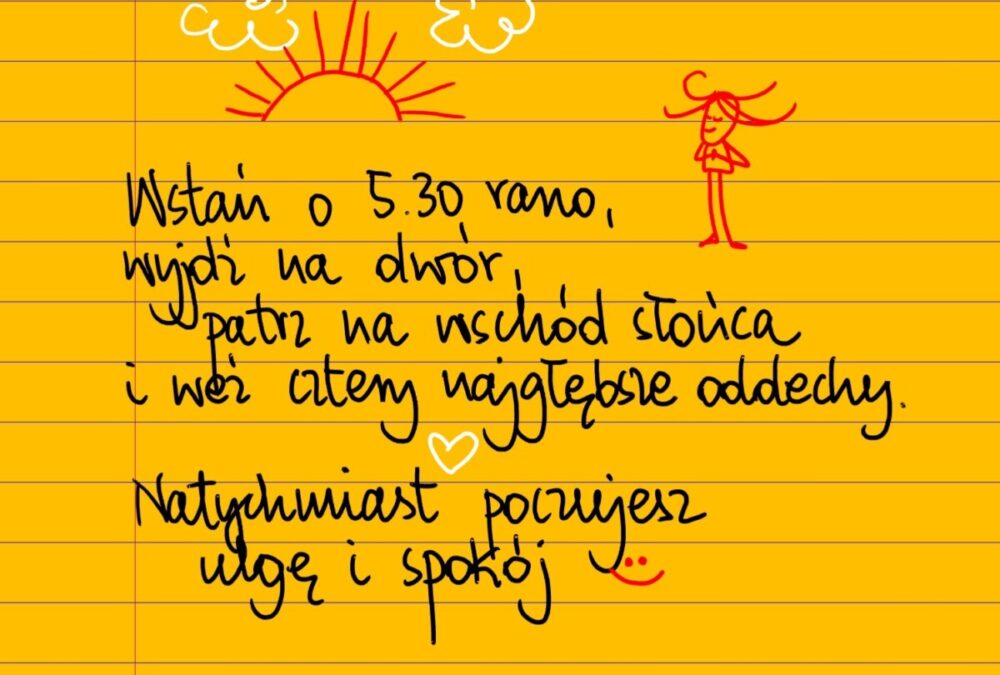 Wstań o 5.30 rano,
wyjdź na dwór,
patrz na wschód słońca
i weź cztery najgłębsze oddechy.
Natychmiast poczujesz
ulgę i spokój